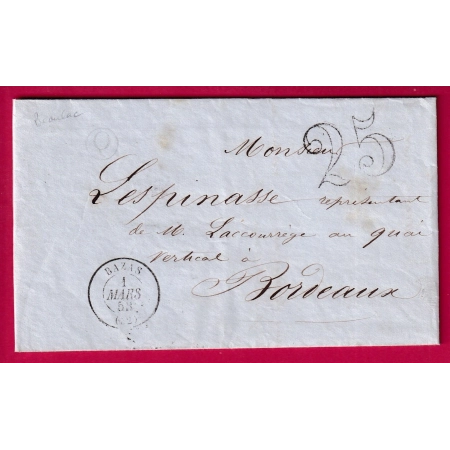 Beaulac
25
Monsieur
Lespinasse représentant
de M. Laccourrège au quai
Vertical à
Bordeaux
BAZAS
1
MARS
53
(32)